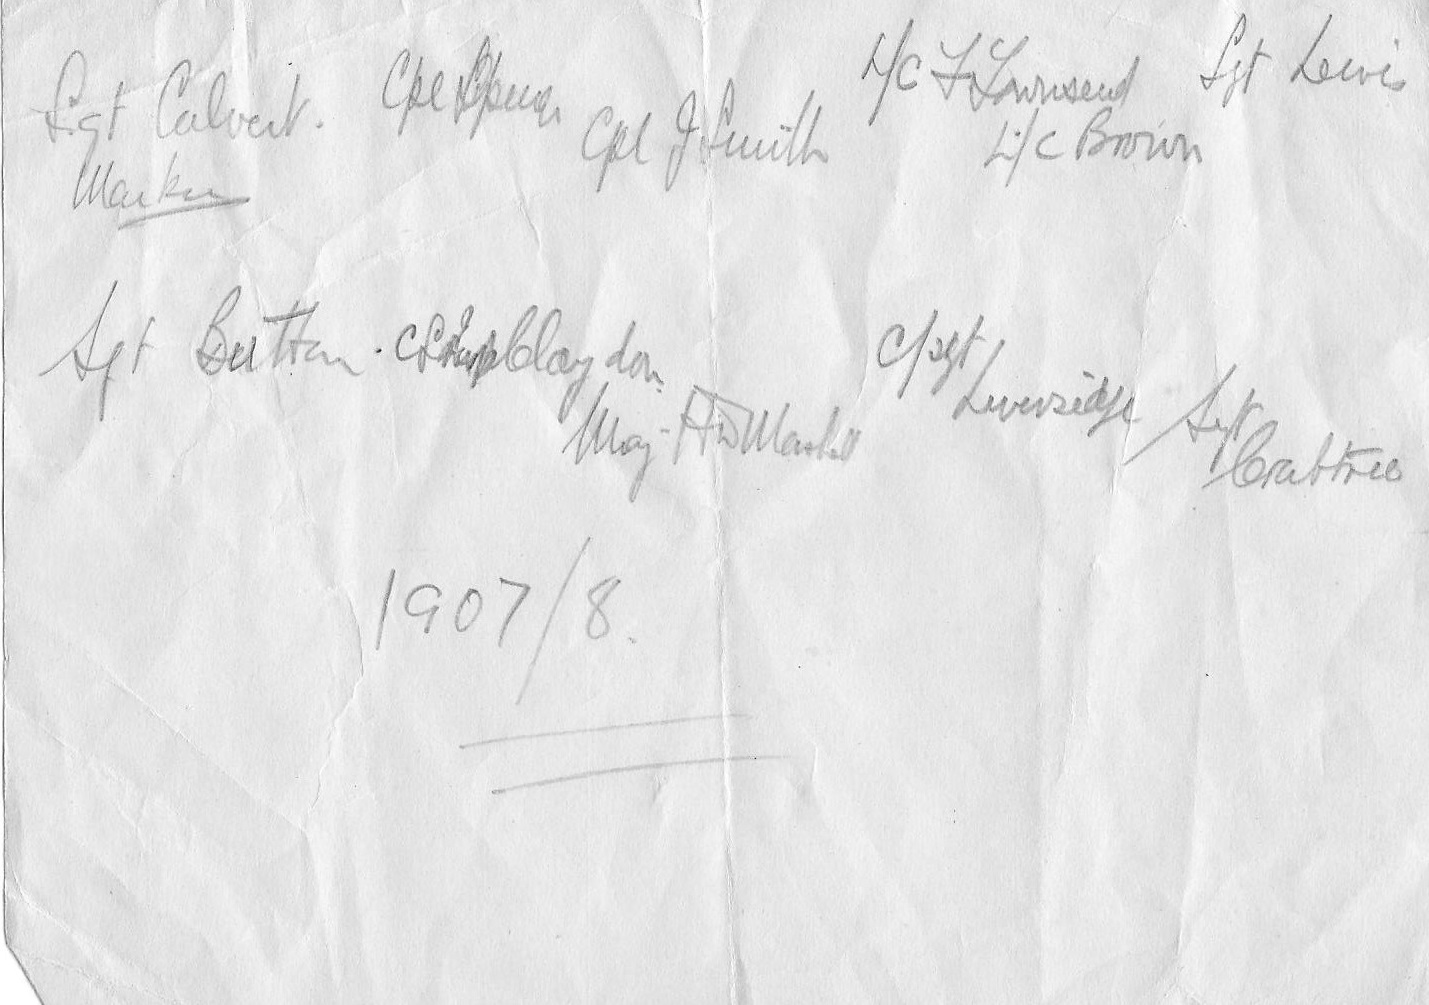 Sgt Calvert. Cpl Spencer Cpl J. Smith L/C F Townsend Sgt Lewis
Marker L/C Brown
Sgt Button. Claydon C/Sgt
Maj- H D Marshall Liversidge Sgt
Crabtree
1907/8.